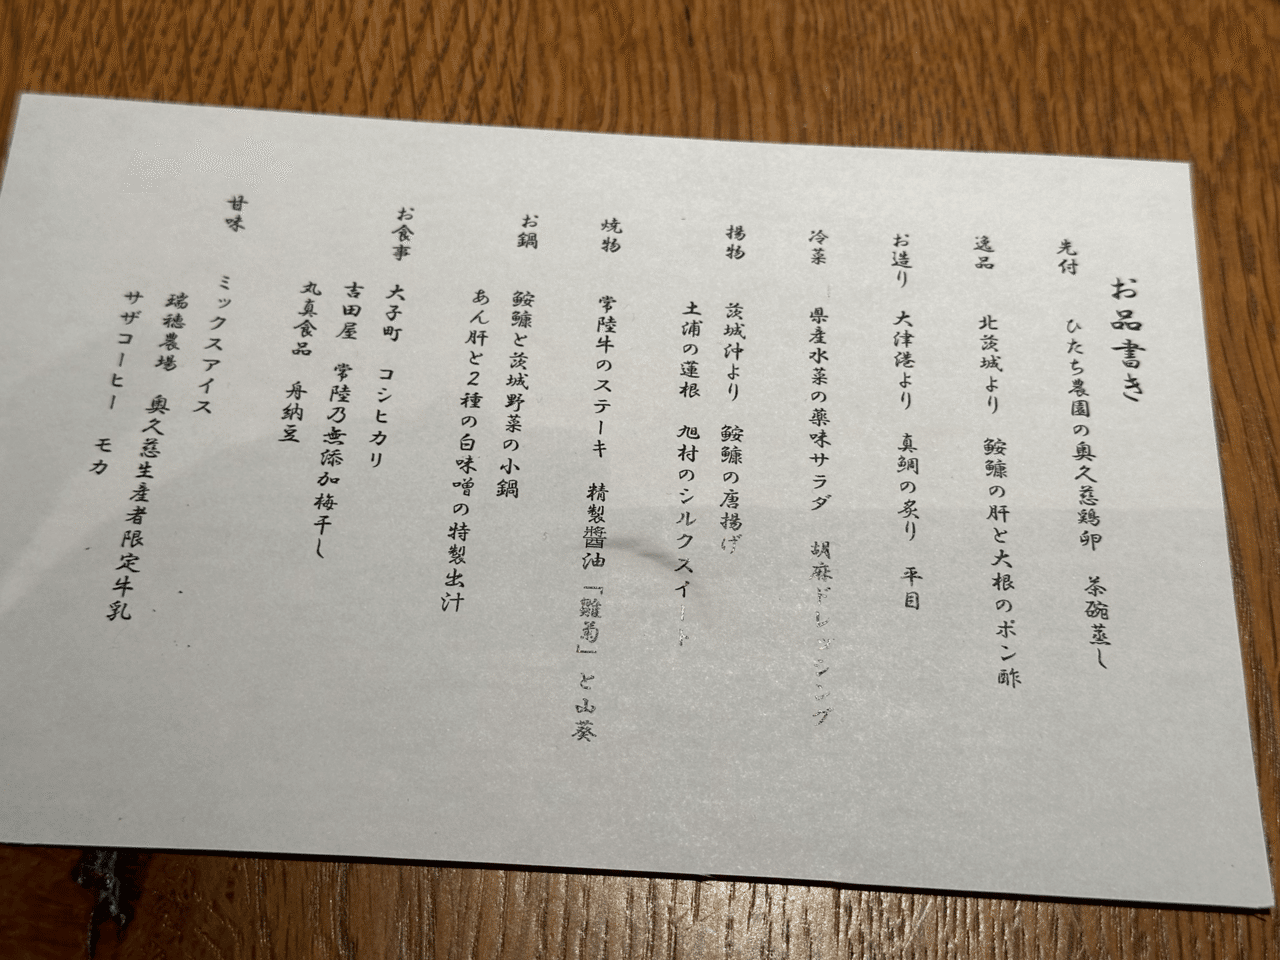 お品書き
先付 ひたち農園の奥久慈鶏卵 茶碗蒸し
逸品 北茨城より 鮟鱇の肝と大根のポン酢
お造り 大津港より 真鯛の炙り 平目
冷菜 県産水菜の薬味サラダ 胡麻ドレッシング
揚物 茨城沖より 鮟鱇の唐揚げ
土浦の蓮根 旭村のシルクスイート
焼物 常陸牛のステーキ 精製醬油「雛菊」と山葵
お鍋 鮟鱇と茨城野菜の小鍋
あん肝と2種の白味噌の特製出汁
お食事 大子町 コシヒカリ
吉田屋 常陸乃無添加梅干し
丸真食品 舟納豆
甘味 ミックスアイス
瑞穂農場 奥久慈生産者限定牛乳
サザコーヒー モカ